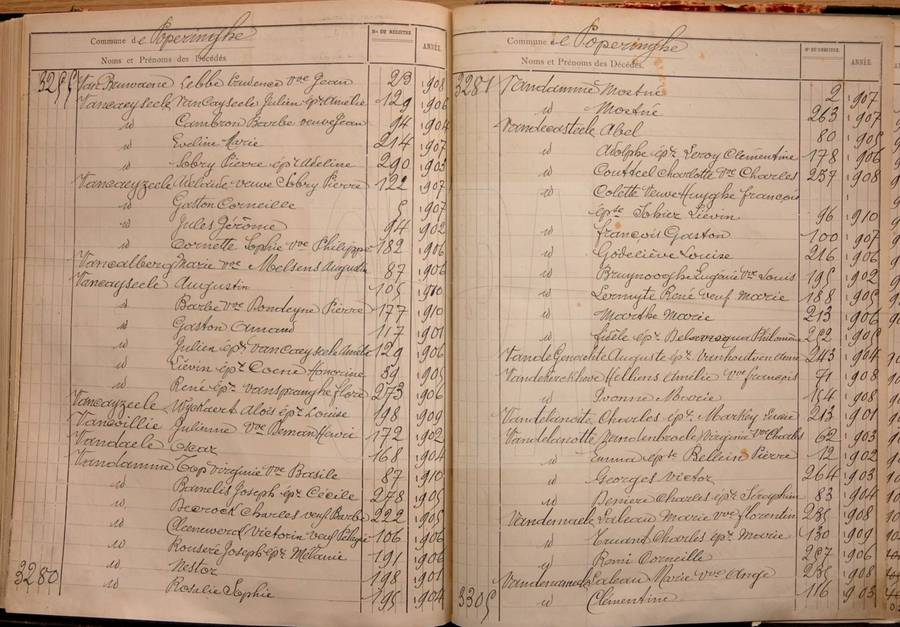 Commune de Poperinghe
Noms et Prénoms des Décédés
N° DU REGISTRE
ANNÉE.
3255 Van Bruwaene Lebbe Prudence Vve Jean 23 1908
Vancayseele VanCayseele Julien épx Amélie 129 1906
id Cambron Barbe veuve Jean 94 1904
id Eveline Marie 214 1907
id Sobry Pierre épx Adeline 290 1903
Vancayzeele Adelaïde veuve Sobry Pierre 122 1907
id Gaston Corneille 5 1907
id Jules Jérôme 94 1902
id Cornette Sophie Vve Philippe 182 1906
Vancalberg Marie Vve Melsens Augustin 87 1906
Vancayseele Augustin 105 1910
id Barbe Vve Rondeyne Pierre 177 1910
id Gaston Amand 117 1901
id Julien épx VanCayseele Amélie 129 1906
id Liévin épx Coene Honorine 59 1905
id René épx Vanspranghe Flora 273 1906
Vancayzeele Wyckaert Aloïs épx Louise 198 1909
Vancoillie Julienne Vve Deman Henri 172 1902
Vandaele Oscar 168 1904
Vandamme Top Virginie Vve Basile 87 1910
id Bamelis Joseph épx Cécile 278 1905
id Charles veuf Barbe 222 1905
id Victorin veuf 106 1906
id Rouseré Joseph épx Mélanie 191 1906
id Nestor 198 1901
3280 id Rosalie Sophie 195 1904
Commune de Poperinghe
Noms et Prénoms des Décédés.
N° DU REGISTRE.
ANNÉE.
3281 Vandamme Mortné 2 1907
id Mortné 263 1907
Vandecasteele Abel 80 1905
id Adolphe épx Leroy Clémentine 178 1906
id Coutteel Charlotte Vve Charles 237 1908
id Colette Veuve Huyghe François
épse Sohier Liévin 96 1910
id François Gaston 100 1907
id Godeliève Louise 216 1906
id Bruynooghe Eugénie Vve Louis 195 1902
id Lermyte René veuf Marie 188 1905
id Marthe Marie 213 1906
id épx Philomène 252 1905
Auguste épx 243 1904
Vandekerckhove Hellens Amélie Vve François 71 1908
id Yvonne 154 1908
Vandelanoite Charles épx Markey Louise 213 1901
Vandelanotte Vandenbroele Virginie Vve Charles 62 1903
id Emma épse Bellein Pierre 12 1902
id Georges Victor 264 1903
id Charles épx Séraphine 83 1904
Vandemaele Labeau Marie Vve Florentin 235 1908
id Charles épx Marie 130 1909
id Remi Corneille 257 1906
Labeau Marie Vve Ange 235 1908
3305 id Clémentine 116 1903